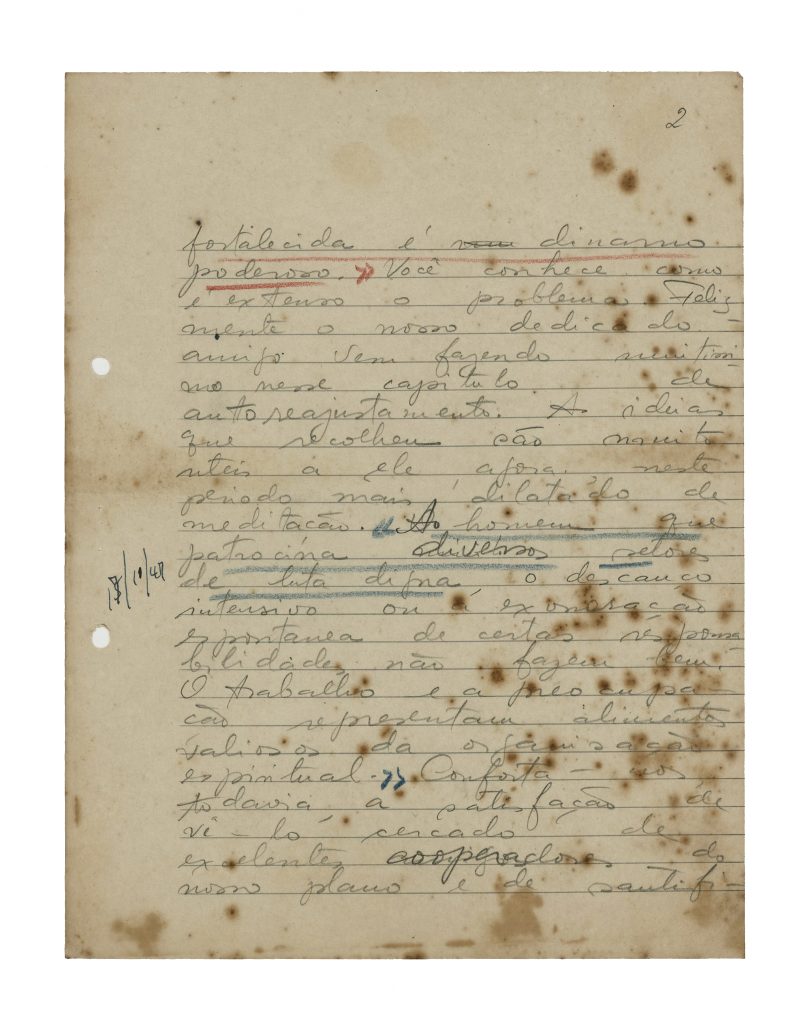 2
fortalecida é um dinamo
poderoso. » Você conhece como
é extenso o problema. Feliz-
mente o nosso dedicado
amigo vem fazendo muitissi-
mo nesse capitulo de
autoreajustamento. As ideias
que recolheu são muito
uteis a ele agora, neste
periodo mais dilatado de
meditação. « Ao homem que
patrocina diversos setores
de luta digna o descanço
intensivo ou a exoneração
espontanea de certas respónsa-
bilidades não fazem bem.
O trabalho e a preocupa-
ção representam alimentos
valiosos da organisação
espiritual. » Conforta-nos
todavia, a satisfação de
vê-lo cercado de
excelentes cooperadores do
nosso plano e de santifi-
18/10/47